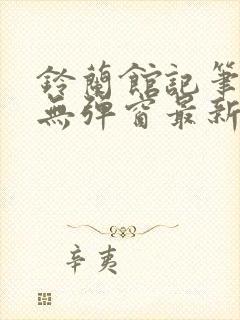 鈴蘭館記筆
無彈窗最新
辛夷